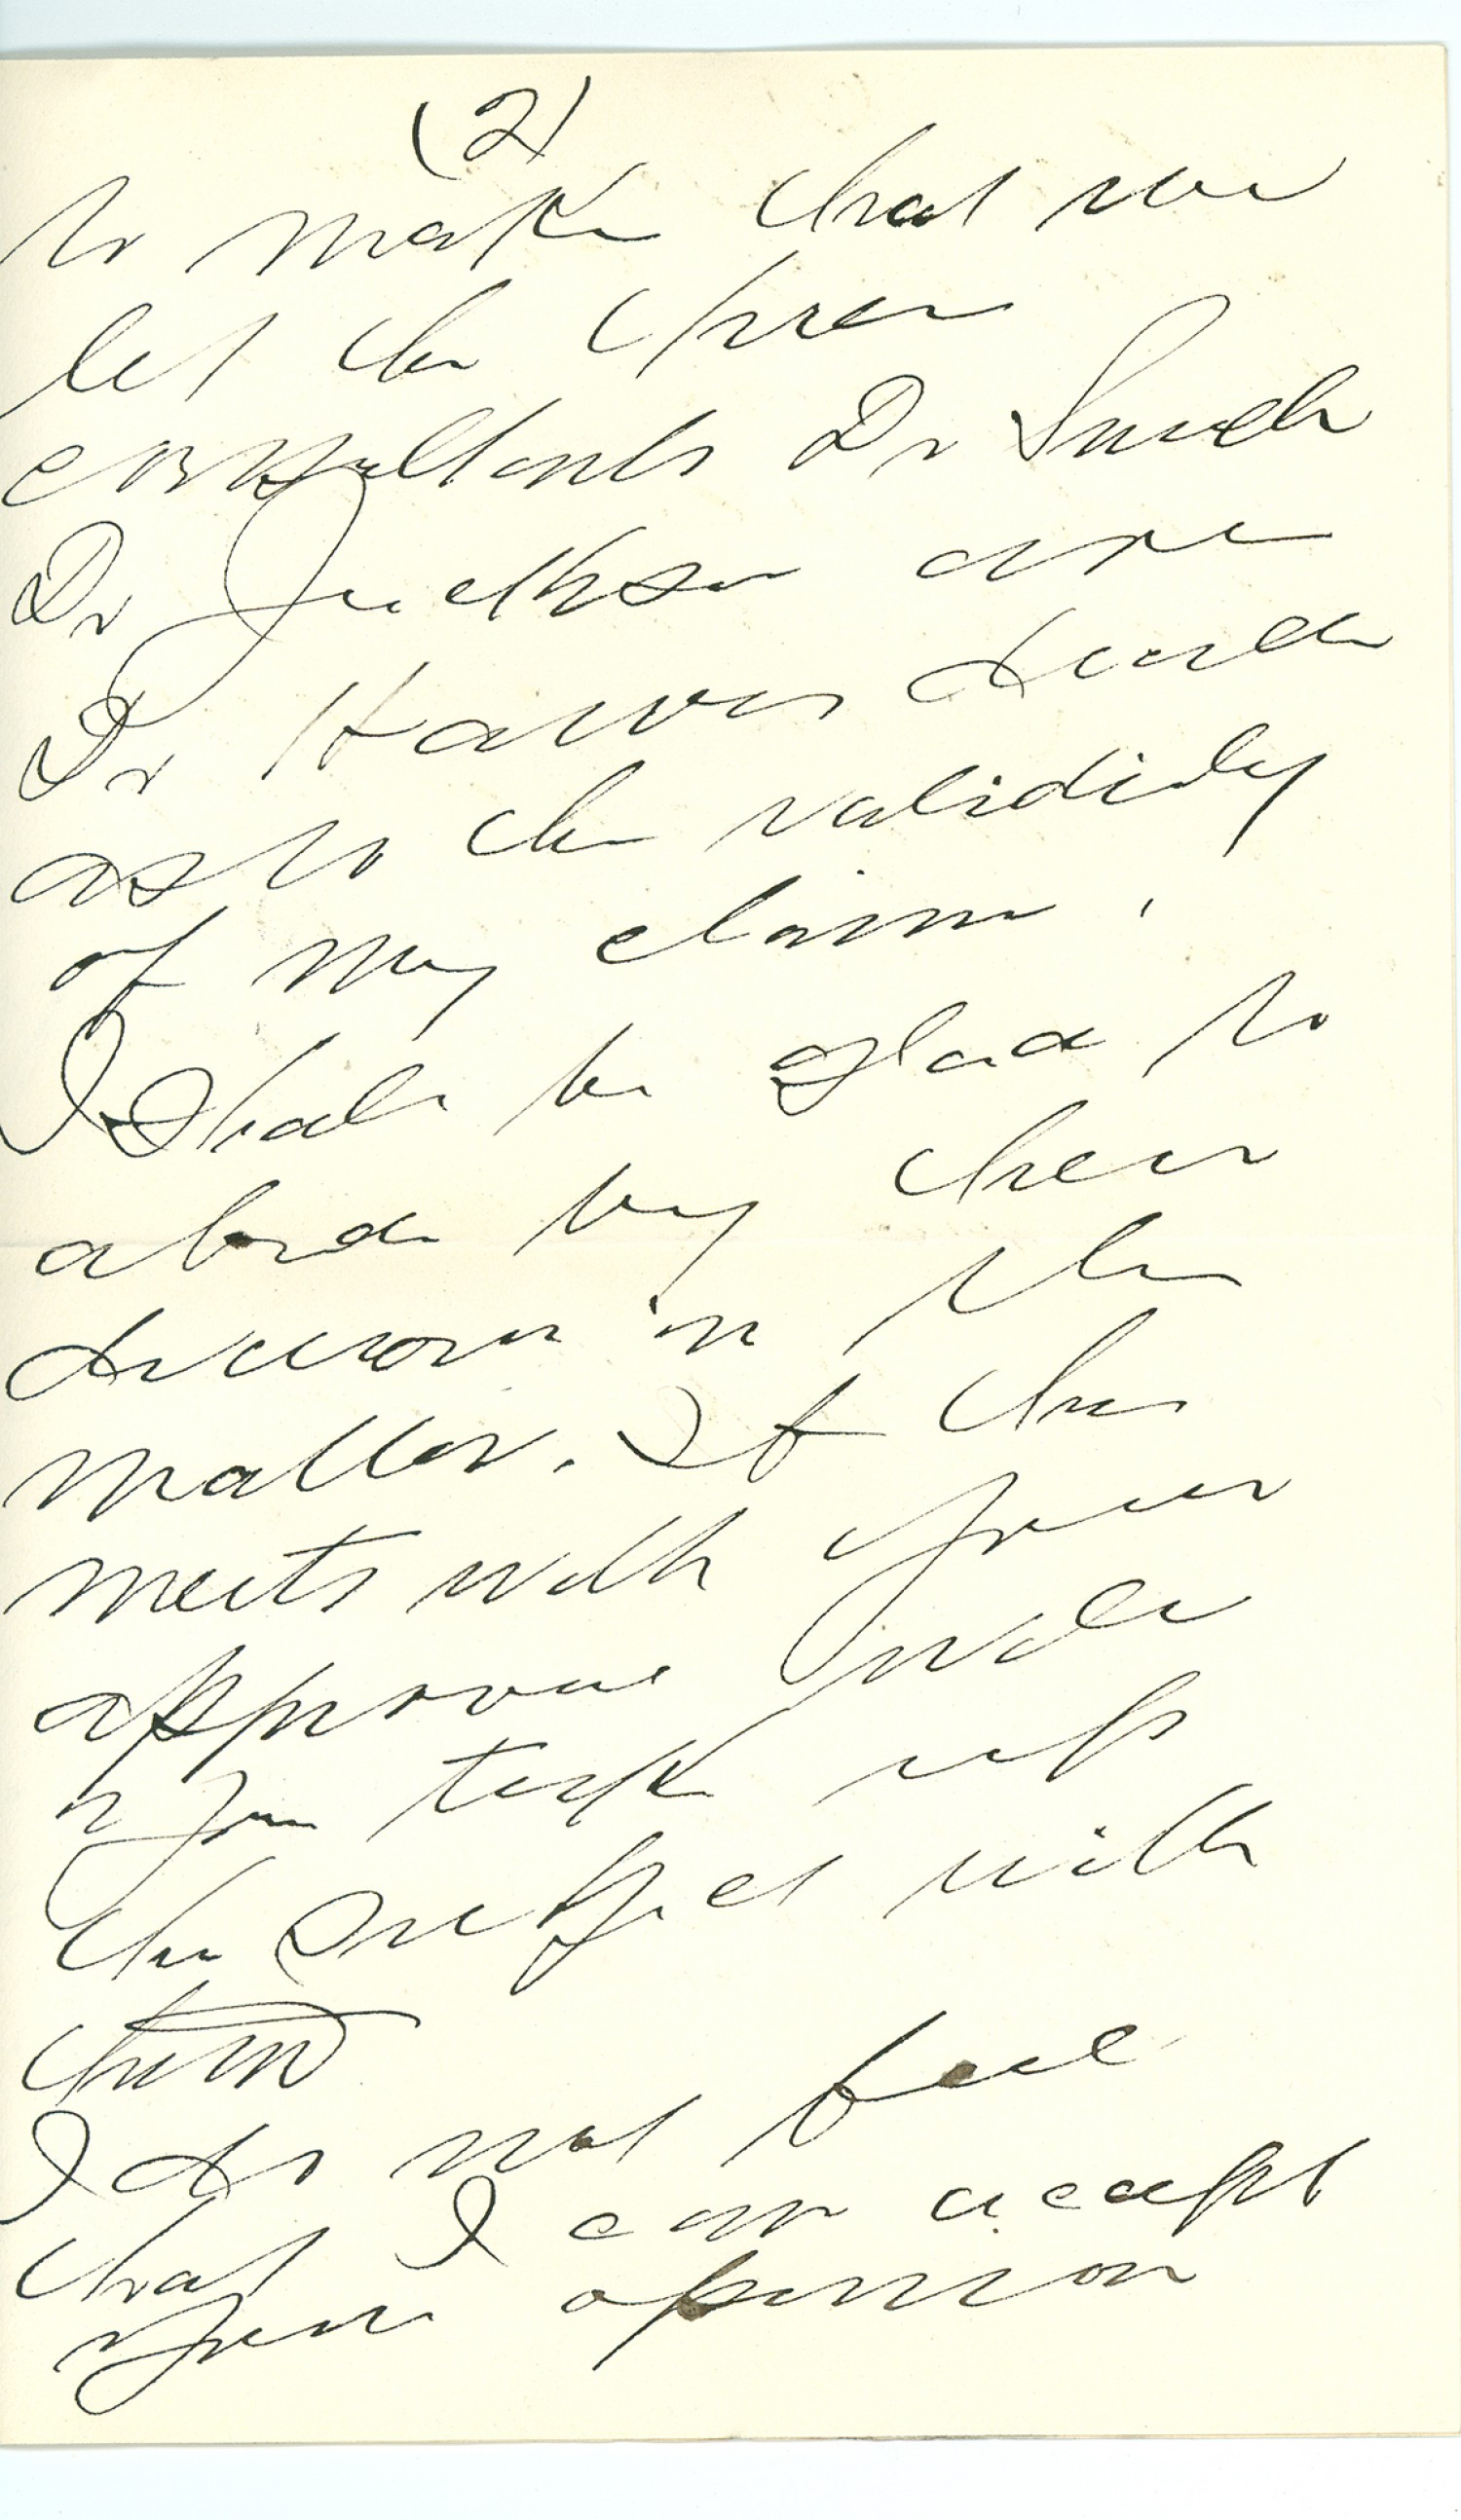 (2)
to make that we
let the three
consultants Dr Smith
Dr Judkson and
Dr Harris decide
as to the validity
of my claim.
I shall be glad to
abide by their
decision in the
matter. If this
meets with your
approval will
you take up
the subject with
them
I do not feel
that I can accept
your opinion